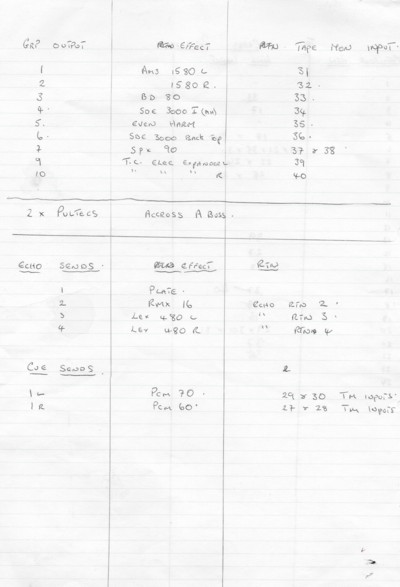 GRP OUTPUT EFFECT RTN. TAPE MON INPUT.
1 AMS 1580 L 31
2 1580 R. 32.
3 BD 80 33.
4. SDE 3000 I 34
5. EVEN HARM 35.
6. SDE 3000 Rack Top 36.
7 SPX 90 37 & 38.
9 T.C. ELEC EXPANDER L 39
10 " " " R 40
2 x PULTECS ACCROSS A BUSS.
ECHO SENDS. EFFECT RTN
1 PLATE.
2 RMX 16 ECHO RTN 2.
3 LEX 480 L " RTN 3.
4 LEX 480 R " RTN 4
CUE SENDS.
1 L PCM 70. 29 & 30 TM INPUTS.
1 R PCM 60. 27 & 28 TM INPUTS